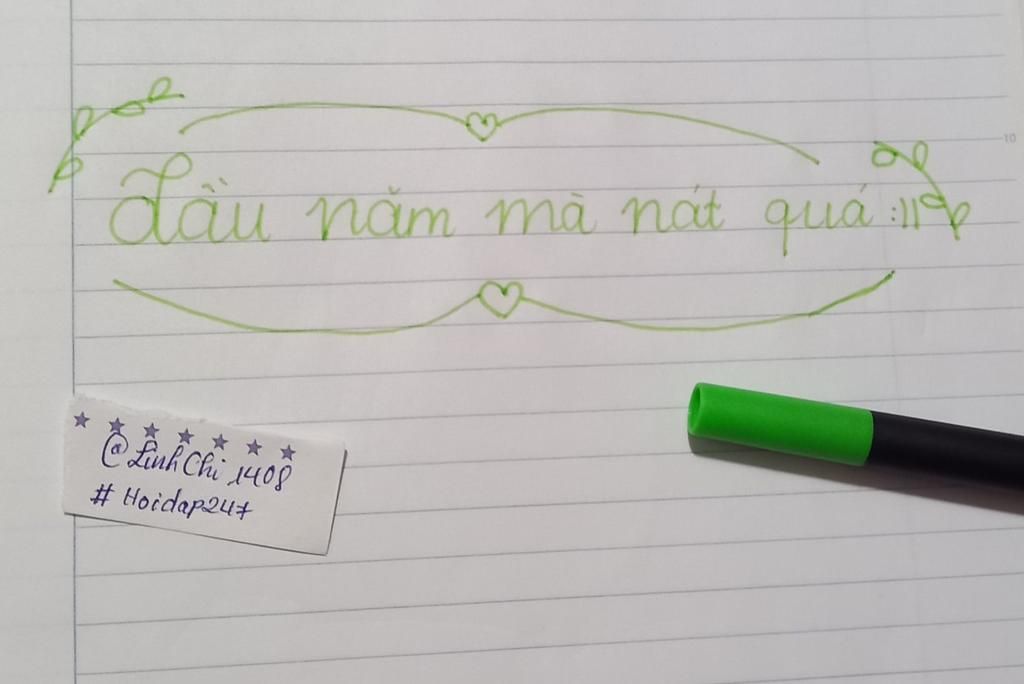 Đầu năm mà nát quá :)))
@LinhChi1408
#Hoidap247
10